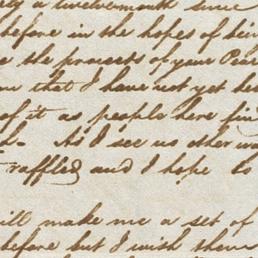 a twelvemonth since
before in the hopes of bein
the proceeds of your
that I have not yet be
of it as people here fin
As I see no other wa
raffled and I hope to
ill make me a set of
before but I wish them